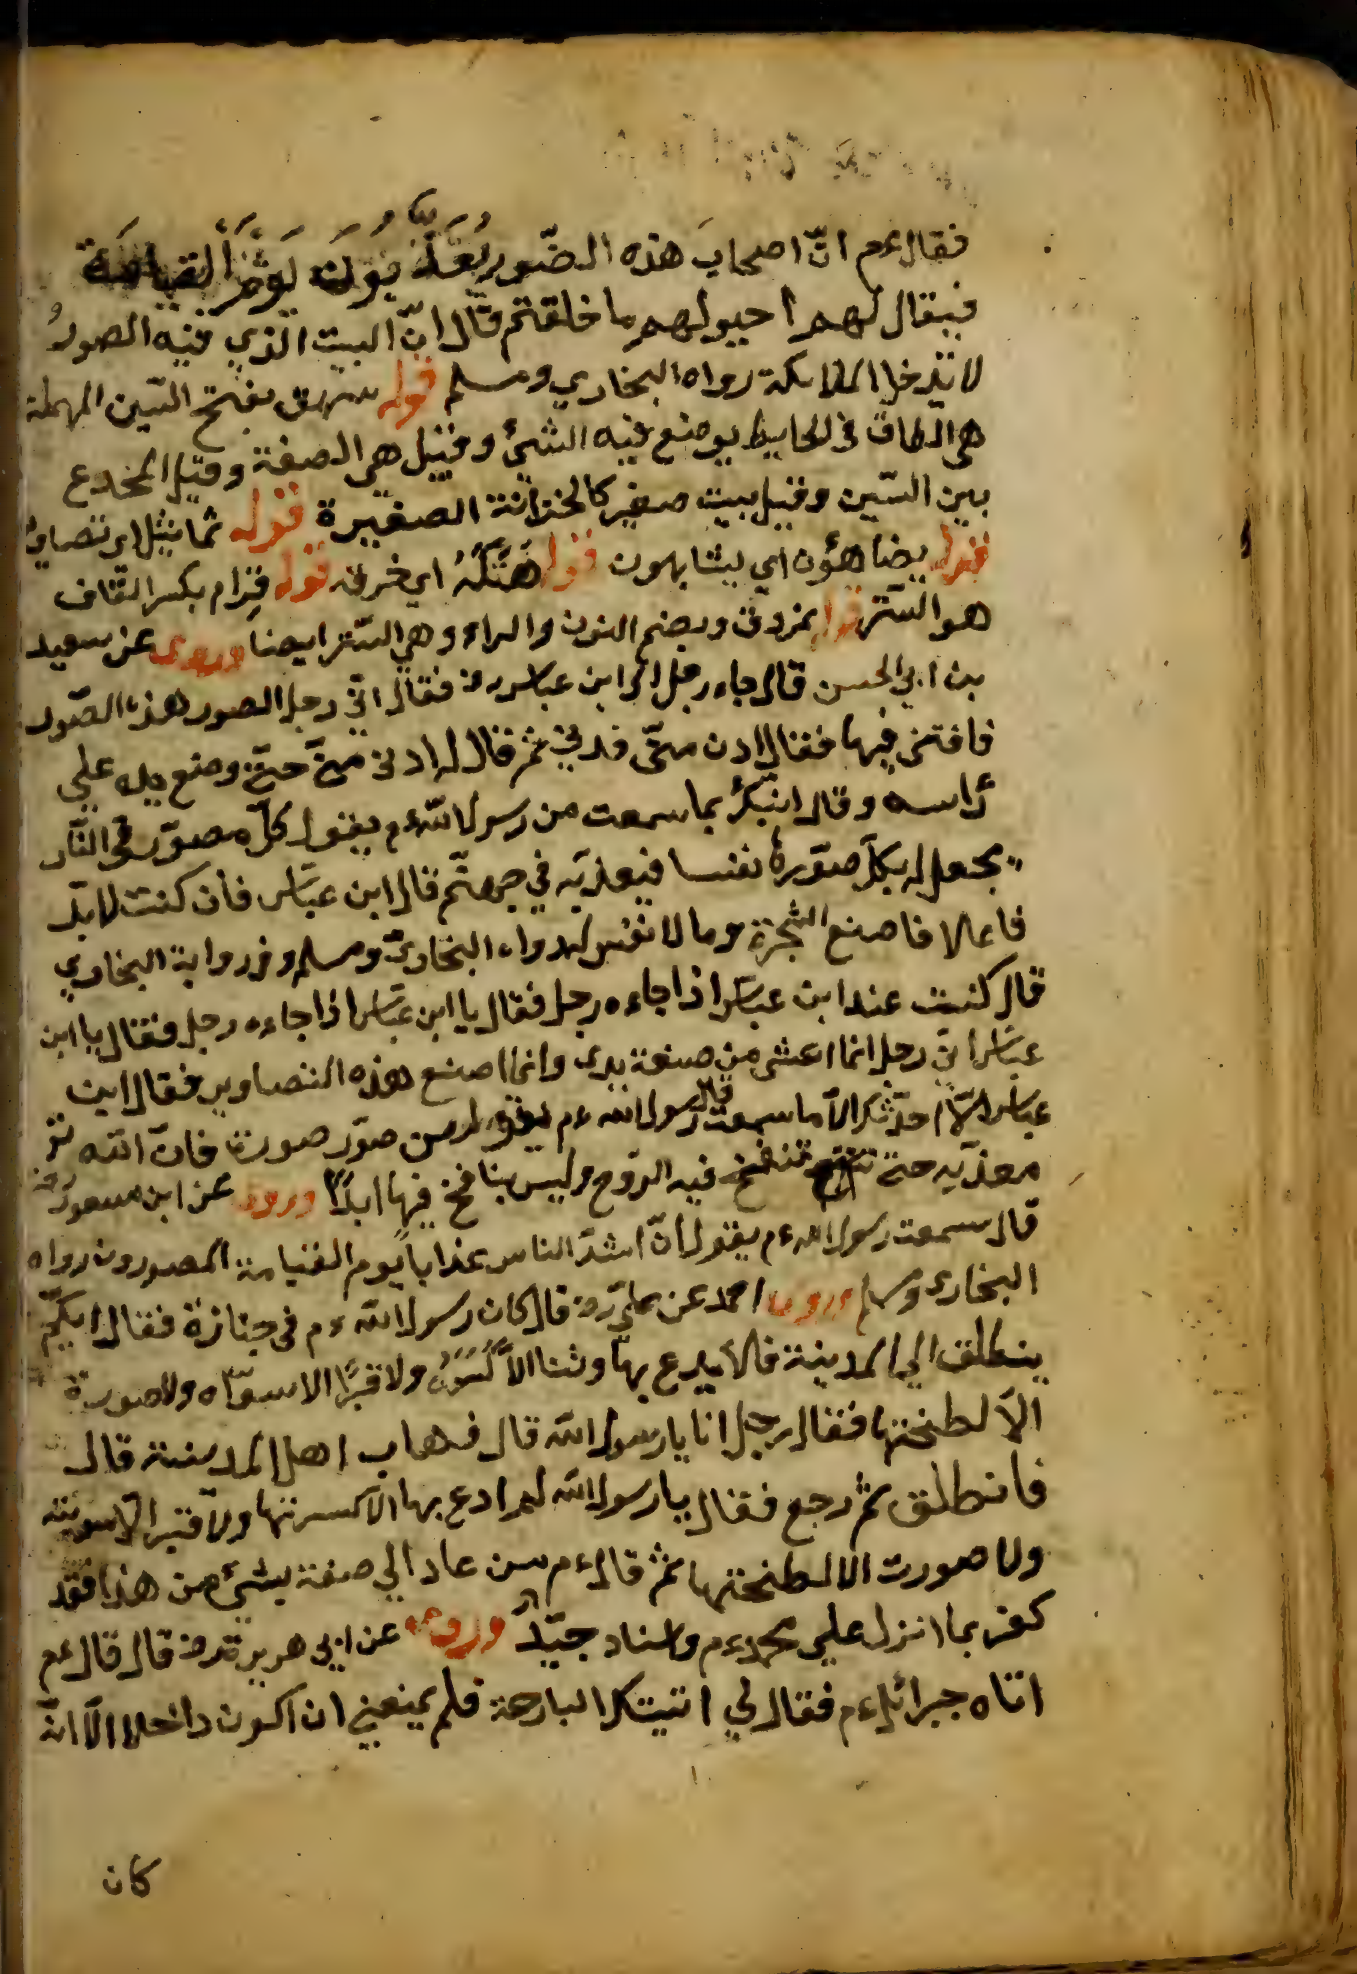 فقال ءم انّ اصحابَ هذه الصّور يُعَذَّبُونَ يَوْمَ القيامَة
فيقال لهم احيو لهم ما خلقتم قال انّ البيت الذي فيه الصورُ
لا تدخل الملائكة رواه البخاري ومسلم قوله سهوق بفتح السّين المهملة
هي الطاق في الحايط يوضع فيه الشيئ وقيل هي الصفة وقيل المخدع
بين السّين وقيل بيت صغير كالخزانة الصغيرة قوله تماثيل اي تصاوير
قوله يضاهؤن اي يشابهون قوله هَتَكَهُ اي خرق قوله قِرام بكسر القاف
هو السّتر قوله نمزوق وبضم النون والراء وهي السّتر ايضا وروى عن سعيد
بن ابي الحسن قال جاء رجل الى ابن عباس رض فقال انّي رجل اصور هذه الصّور
فافتنى فيها فقال ادن منّى فدنى ثم قال له ادن منّى حتّى وضع يده علي
رأسه وقال انبّئك بما سمعت من رسول الله ءم يقول كلّ مصوّر في النّار
يجعل له بكلّ صوّرة نفسا فيعذّبه في جهنّم قال ابن عبّاس فان كنت لا بدّ
فاعلا فاصنع الشجرة وما لا نفس له رواه البخاريّ ومسلم وفي رواية البخاري
قال كنت عند ابن عبّاس اذا جاءه رجل فقال يا ابن عبّاس اذا جاءه رجل فقال يا ابن
عبّاس انّي رجل انما اعشى من صنعة يدى وانى اصنع هذه التصاوير فقال ابن
عبّاس لا احدّثك الاّ ما سمعت قال رسول الله ءم يقول من صوّر صورة فانّ الله تع
معذّبه حتى تنفخ فيه الرّوح وليس بنافخ فيها ابدًا وروى عن ابن مسعود رض
قال سمعت رسول الله ءم يقول انّ اشدّ الناس عذابا يوم القيامة المصورون رواه
البخارى ومسلم وروى احمد عن عليّ رض قال كان رسول الله ءم في جنازة فقال ايكم
ينطلق الي المدينة فلا يدع بها وثنا الاّ كَسَرَهُ ولا قبرًا الا سوّاه ولا صورة
الاّ لطخها فقال رجل انا يا رسول الله قال فهاب اهل المدينة قال
فانطلق ثم رجع فقال يا رسول الله لم ادع بها الا كسرتها ولا قبر الاّ سويته
ولا صورت الا لطختها ثم قال ءم من عاد الي صنعة بشيئ من هذا فقد
كفر بما انزل علي محمد ءم واسناد جيّدٌ وروى عن ابي هريرة رض قال قال ءم
اتاه جبرائل ءم فقال لي اتيتك البارحة فلم يمنعني ان اكون داخلا الاّ انّه
كان